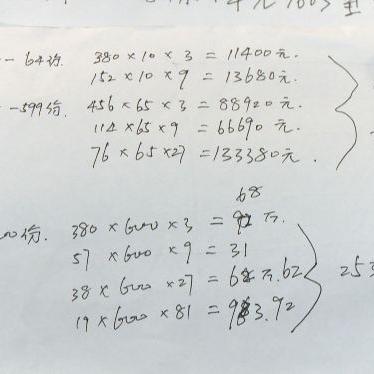 一64份. 380×10×3=11400元.
152×10×9=13680元.
-599份. 456×65×3=88920元.
114×65×9=66690元.
76×65×27=133380元.
68
份. 380×600×3=万.
57×600×9=31
38×600×27=6万.62
19×600×81=93.92
253